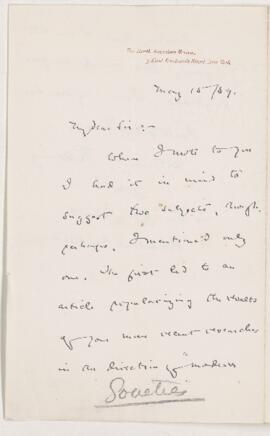 The North American Review,
3 East Fourteenth Street, New York
May 15/89.
My dear Sir:-
When I wrote to you
I had it in mind to
suggest two subjects, though,
perhaps, I mentioned only
one. The first led to an
article popularizing the results
of your more recent researches
in the direction of "modern
Societies